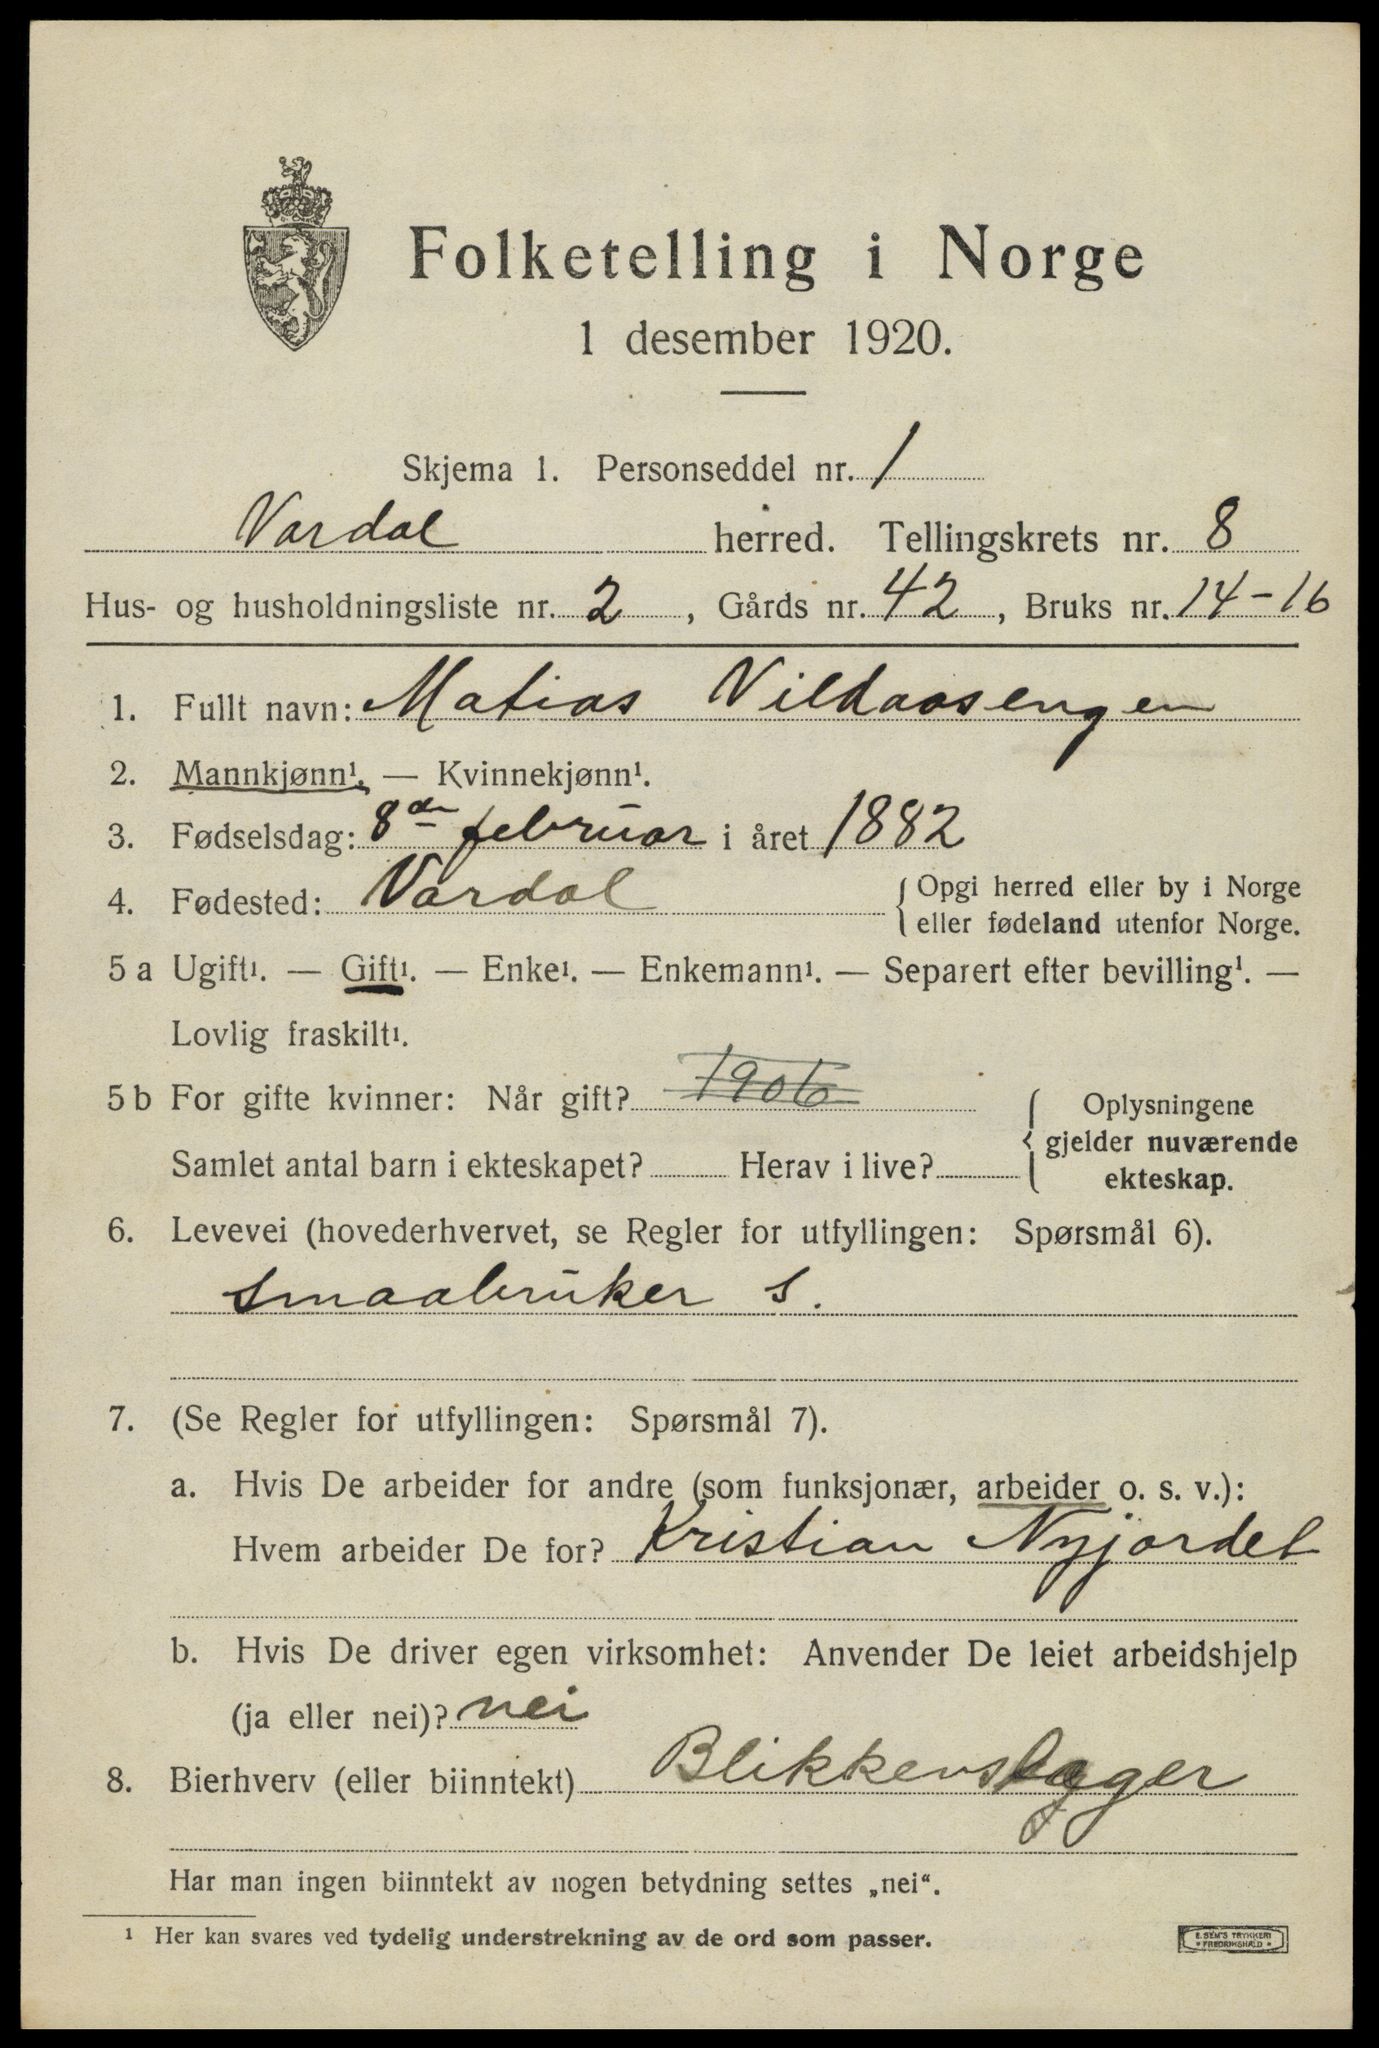 Folketelling i Norge
1 desember 1920.
Skjema 1. Personseddel nr. 1
Vardal herred. Tellingskrets nr. 8
Hus- og husholdningsliste nr. 2, Gårds nr. 42, Bruks nr. 14-16
1. Fullt navn: Matias Vildaasengen
2. Mannkjønn¹. — Kvinnekjønn¹.
3. Fødselsdag: 8de februar i året 1882
4. Fødested: Vardal { Opgi herred eller by i Norge
eller fødeland utenfor Norge.
5 a Ugift¹. — Gift¹. — Enke¹. — Enkemann¹. — Separert efter bevilling¹. —
Lovlig fraskilt¹.
5 b For gifte kvinner: Når gift? 1906 { Oplysningene
gjelder nuværende
Samlet antal barn i ekteskapet? Herav i live? ekteskap.
6. Levevei (hovederhvervet, se Regler for utfyllingen: Spørsmål 6).
smaabruker s.
7. (Se Regler for utfyllingen: Spørsmål 7).
a. Hvis De arbeider for andre (som funksjonær, arbeider o. s. v.):
Hvem arbeider De for? Kristian Nyjordet
b. Hvis De driver egen virksomhet: Anvender De leiet arbeidshjelp
(ja eller nei)? nei
8. Bierhverv (eller biinntekt) Blikkenslager
Har man ingen biinntekt av nogen betydning settes „nei“.
¹ Her kan svares ved tydelig understrekning av de ord som passer.
E. SEM'S TRYKKERI
• FREDRIKSHALD •